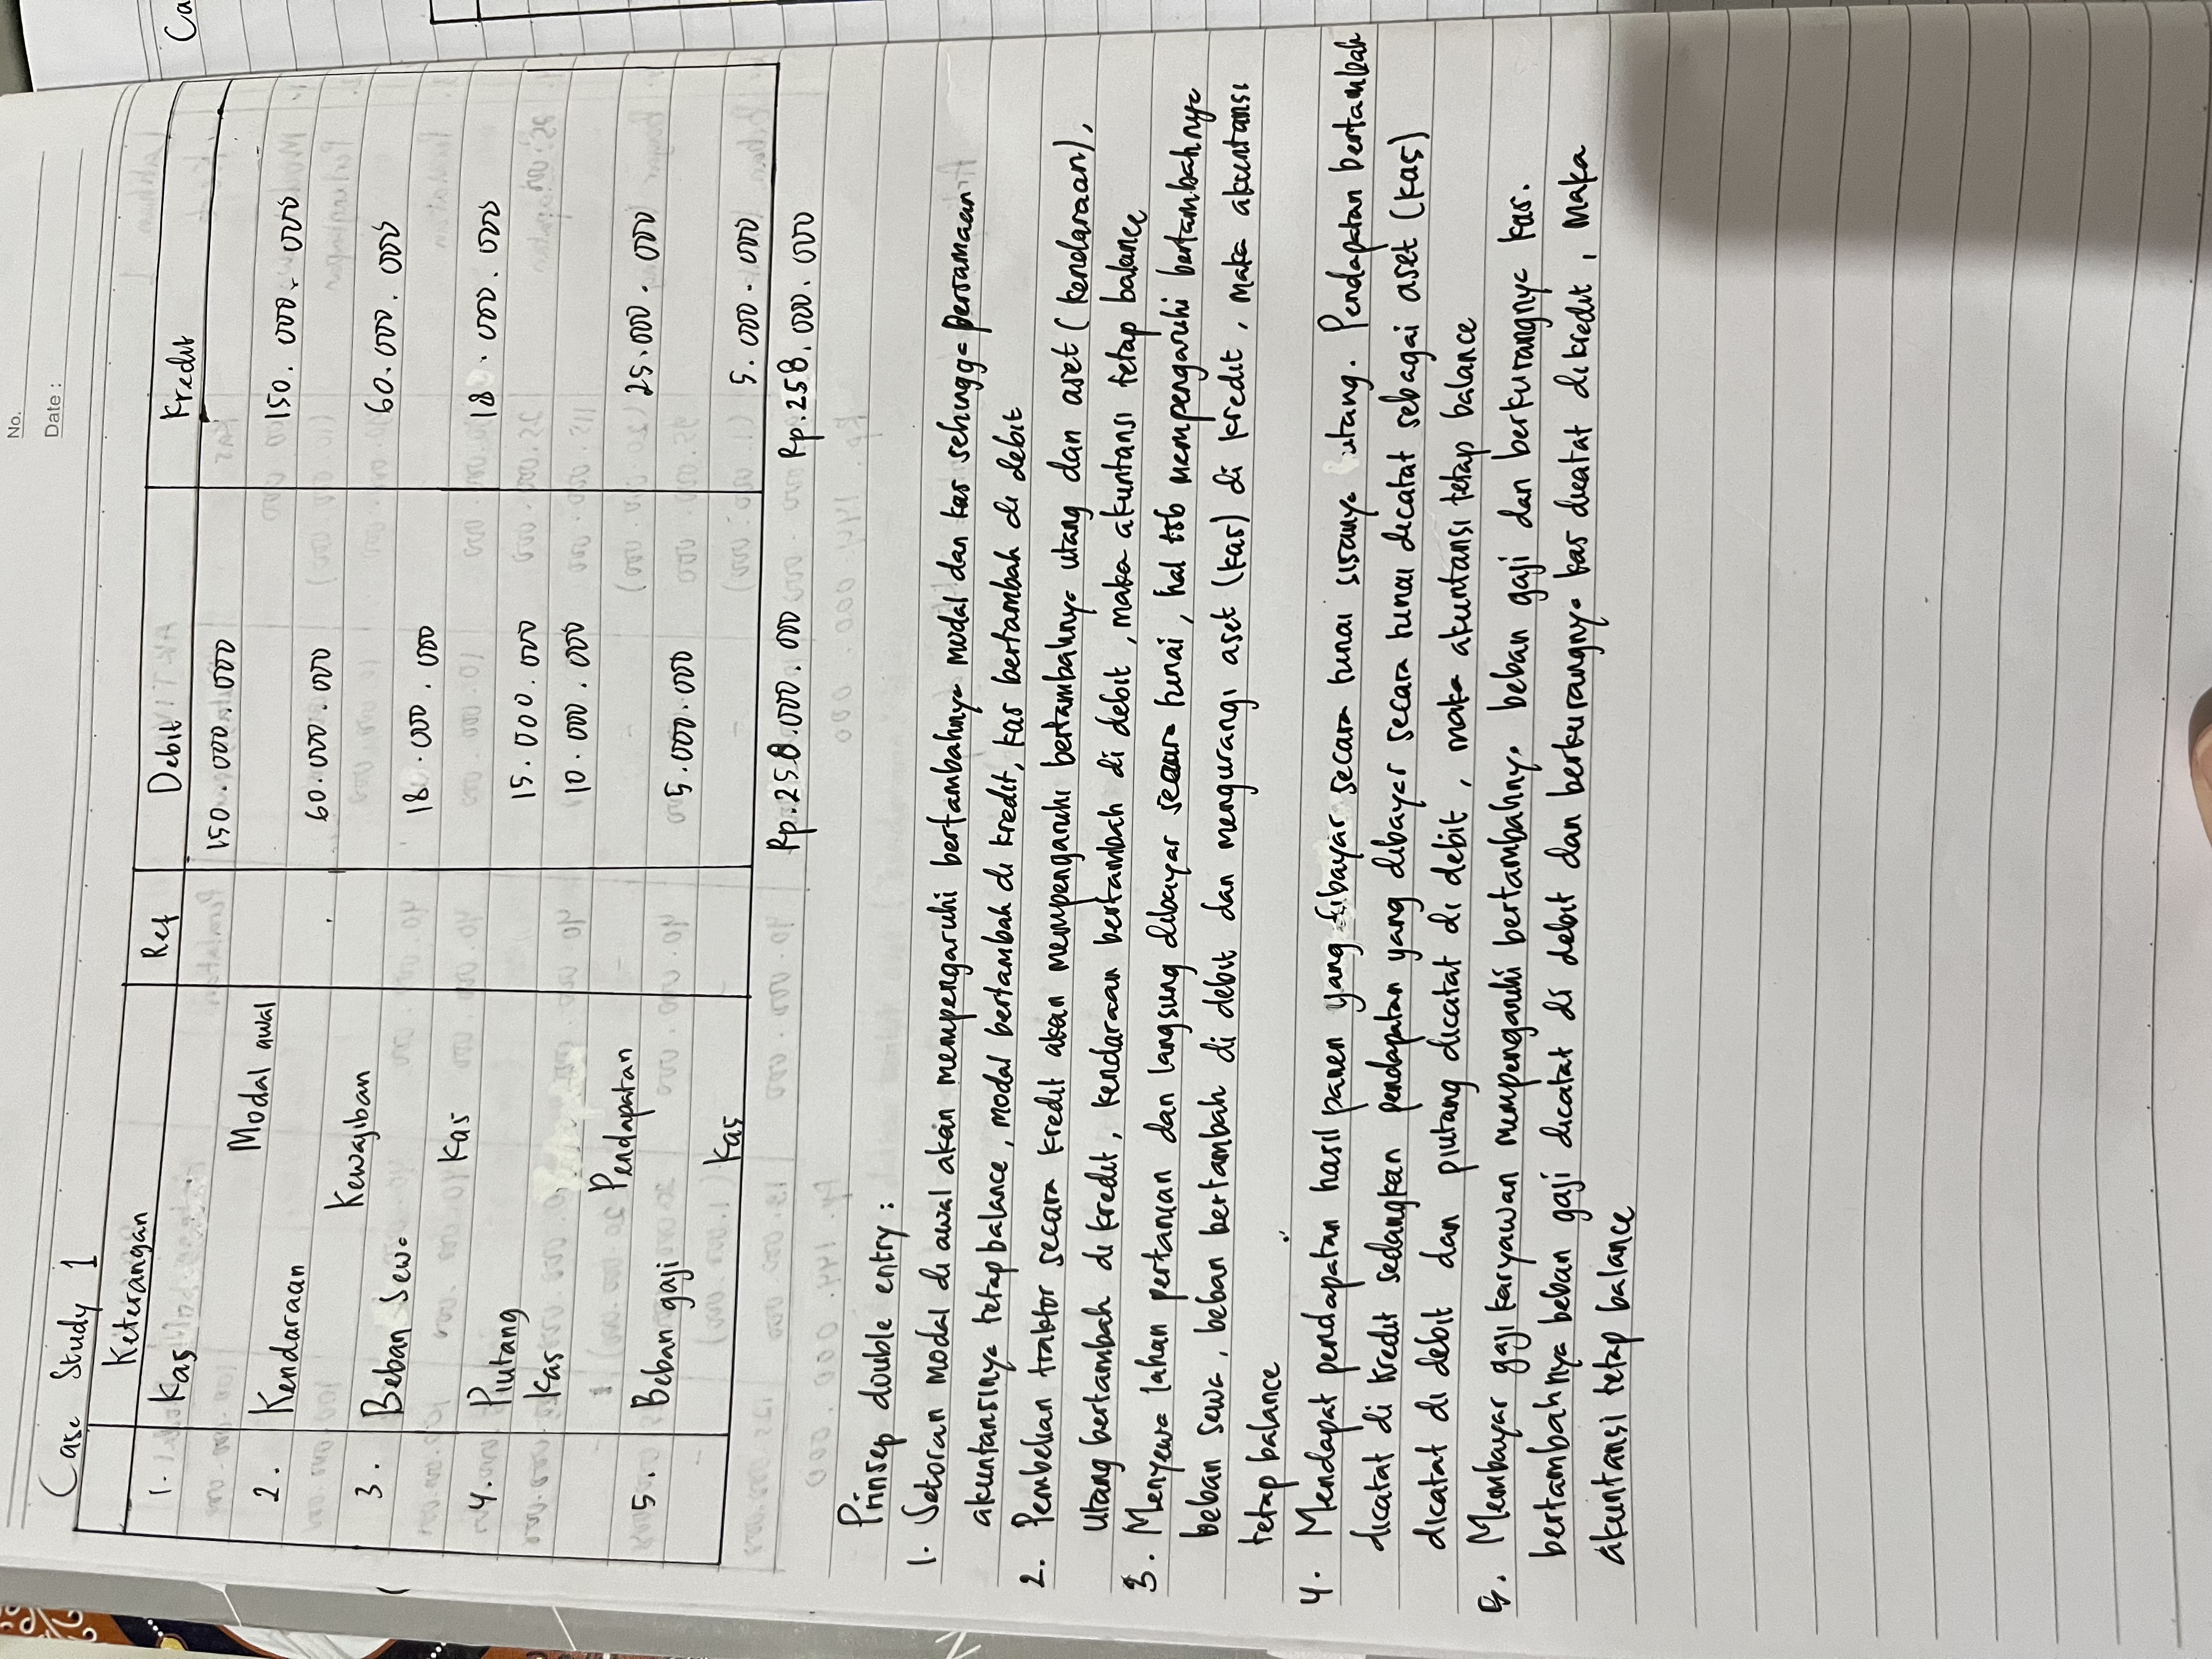 No.
Date :
Ca
Case Study 1
Keterangan Ref Debit Kredit
1. Kas 150.000.000
Modal awal 150.000.000
2. Kendaraan 60.000.000
Kewajiban 60.000.000
3. Beban Sewa 18.000.000
Kas 18.000.000
4. Piutang 15.000.000
Kas 10.000.000
Pendapatan 25.000.000
5. Beban gaji 5.000.000
Kas 5.000.000
Rp.258.000.000 Rp.258.000.000
Prinsep double entry :
1. Setoran modal di awal akan mempengaruhi bertambahnya modal dan kas sehingga persamaan
akuntansinya tetap balance, modal bertambah di kredit, kas bertambah di debit
2. Pembelian traktor secara kredit akan mempengaruhi bertambahnya utang dan aset (kendaraan),
Utang bertambah di kredit, kendaraan bertambah di debit, maka akuntansi tetap balance
3. Menyewa lahan pertanian dan langsung dibayar secara tunai, hal tsb mempengaruhi bertambahnya
beban sewa, beban bertambah di debit dan mengurangi aset (kas) di kredit, maka akuntansi
tetap balance
4. Mendapat pendapatan hasil panen yang dibayar secara tunai sisanya utang. Pendapatan bertambah
dicatat di kredit sedangkan pendapatan yang dibayar secara tunai dicatat sebagai aset (kas)
dicatat di debit dan piutang dicatat di debit, maka akuntansi tetap balance
5. Membayar gaji karyawan mempengaruhi bertambahnya beban gaji dan berkurangnya kas.
bertambahnya beban gaji dicatat di debit dan berkurangnya kas dicatat di kredit, maka
akuntansi tetap balance